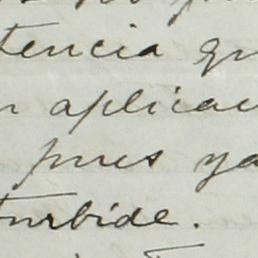 tencia qu
n aplicau
pues ya
turbide.